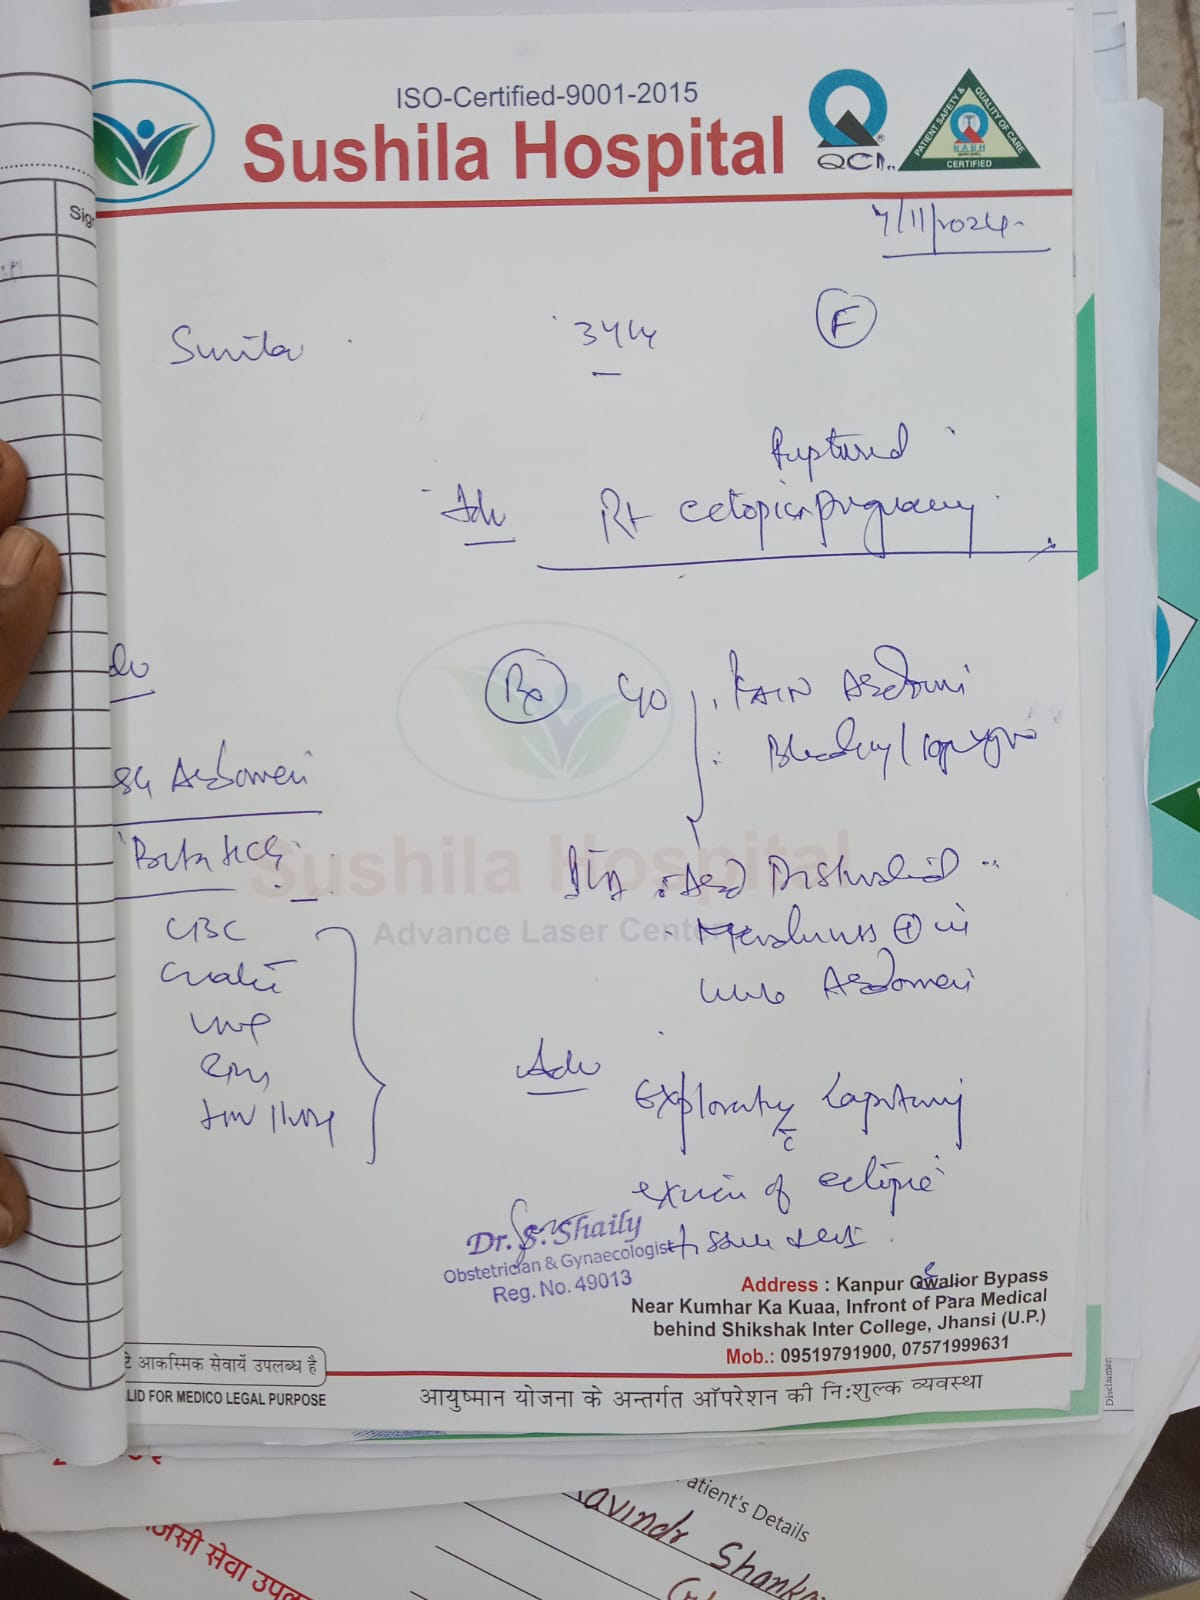 ISO-Certified-9001-2015
Sushila Hospital
QCI
PATIENT SAFETY & QUALITY OF CARE
NABH
CERTIFIED
Sig
7/11/2024
Sunita 34y F
Ruptured
Adv Rt ectopic pregnancy
Adv
Rx C/O PAIN Abdomen
Bleeding
USG Abdomen
Beta HCG
CBC
Sushila Hospital
Advance Laser Center
Abd Distended
Tenderness + in
Abdomen
Adv
Exploratory Laparotomy
c
excision of ectopic
tissue
Dr. S. Shaily
Obstetrician & Gynaecologist
Reg. No. 49013
Address : Kanpur Gwalior Bypass
Near Kumhar Ka Kuaa, Infront of Para Medical
behind Shikshak Inter College, Jhansi (U.P.)
Mob.: 09519791900, 07571999631
टे आकस्मिक सेवायें उपलब्ध है
LID FOR MEDICO LEGAL PURPOSE
आयुष्मान योजना के अन्तर्गत ऑपरेशन की निःशुल्क व्यवस्था
Disclaimer:
atient's Details
Ravindr Shanka
जेंसी सेवा उपल